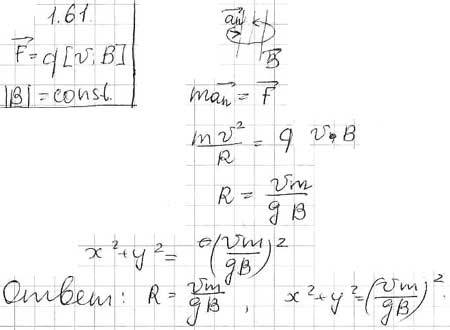 1.61.
F⃗ = q [v; B]
|B| = const.
a⃗ₙ
B⃗
ma⃗ₙ = F⃗
mv²/R = q v·B
R = vm/gB
x² + y² = (vm/gB)²
Ответ: R = vm/gB, x² + y² = (vm/gB)².